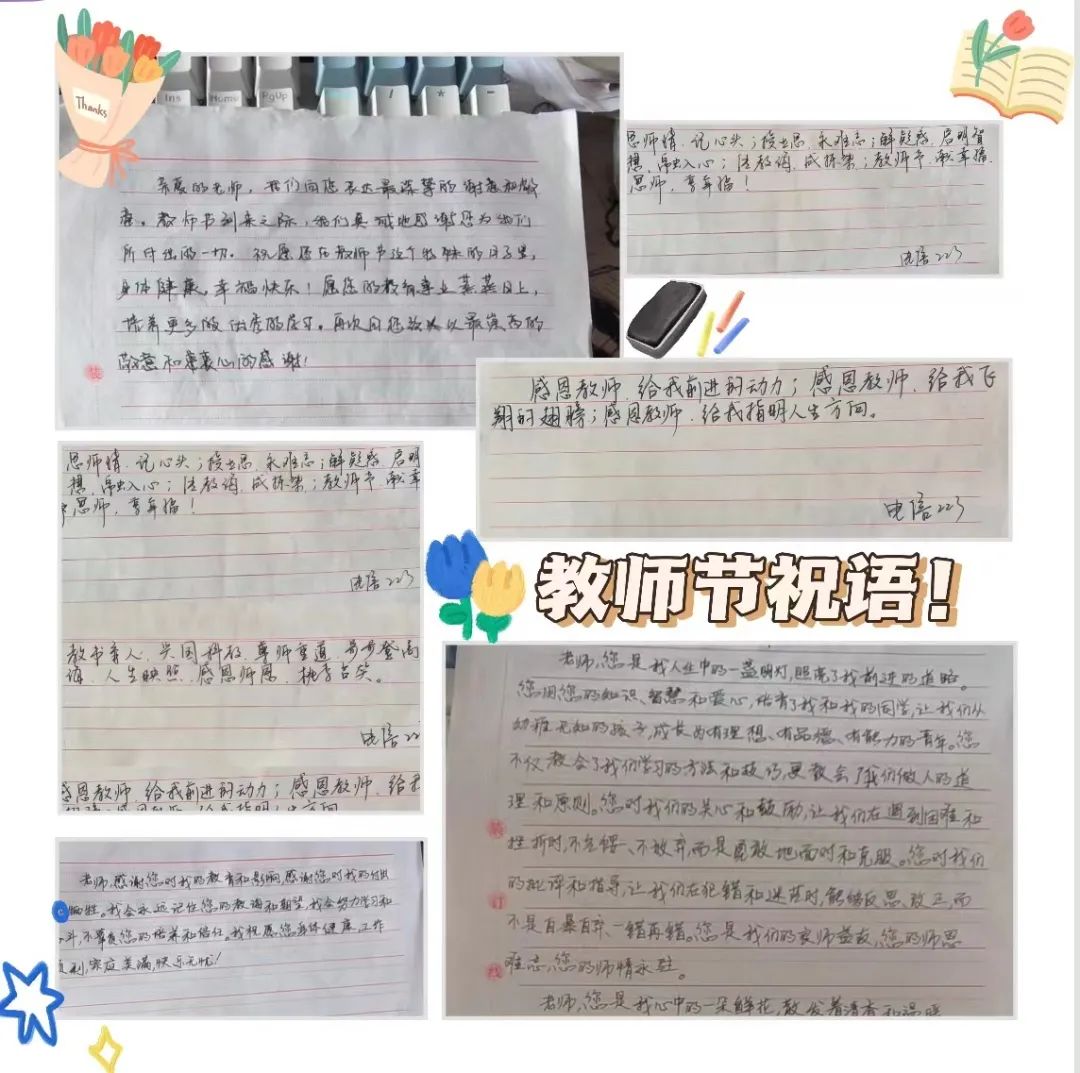 Thanks
Ins Home PgUp / * -
亲爱的老师，我们向您表达最深挚的谢意和敬
意。教师节到来之际，我们真诚地感谢您为我们
所付出的一切。祝愿您在教师节这个特殊的日子里，
身体健康，幸福快乐！愿您的教育事业蒸蒸日上，
培养更多的优秀的学子。再次向您致以最崇高的
敬意和衷心的感谢！
恩师情，记心头；授业恩，永难忘；解疑惑，启明智
想，入心；教诲，成栋梁；教师节，献幸福
恩师，享年福！
电信223
感恩教师，给我前进的动力；感恩教师，给我飞
翔的翅膀；感恩教师，给我指明人生方向。
电信223
恩师情，记心头；授业恩，永难忘；解疑惑，启明
想，入心；教诲，成栋梁；教师节，献幸
恩师，享年福！
电信223
教书育人，兴国科教，尊师重道，步步登高
诲，人生映照，感恩师恩，桃李含笑。
电信22
感恩教师，给我前进的动力；感恩教师，给我
教师节祝语！
老师，您是我人生中的一盏明灯，照亮了我前进的道路。
您用您的知识、智慧和爱心，培育了我和我的同学，让我们从
幼稚无知的孩子，成长为有理想、有品德、有能力的青年。您
不仅教会了我们学习的方法和技巧，更教会了我们做人的道
理和原则。您对我们的关心和鼓励，让我们在遇到困难和
挫折时，不气馁、不放弃，而是勇敢地面对和克服。您对我们
的批评和指导，让我们在犯错和迷茫时，能够反思、改正，而
不是自暴自弃、一错再错。您是我们的良师益友，您的师恩
难忘，您的师情永驻。
老师，您是我心中的一朵鲜花，散发着清香和温暖
装
订
线
老师，感谢您对我的教育和影响，感谢您对我的付出
牺牲。我会永远记住您的教诲和期望，我会努力学习和
斗，不辜负您的培养和信任。我祝愿您身体健康，工作
顺利，家庭美满，快乐无忧！